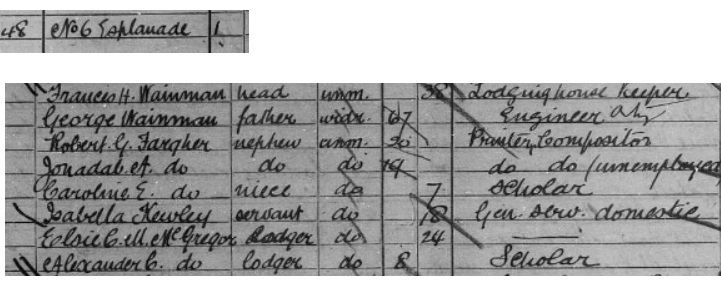 48 No 6 Esplanade 1
Frances H. Wainman head unm. 38 Lodging house keeper
George Wainman father widr. 67 Engineer
Robert G. Fargher nephew unm. 20 Printer Compositor
Jonadab A. do do do 19 do do (unemployed
Caroline E. do niece do 7 Scholar
Isabella Kewley servant do 18 Gen. serv. domestic
Elsie C. M. McGregor Lodger do 24
Alexander C. do lodger do 8 Scholar